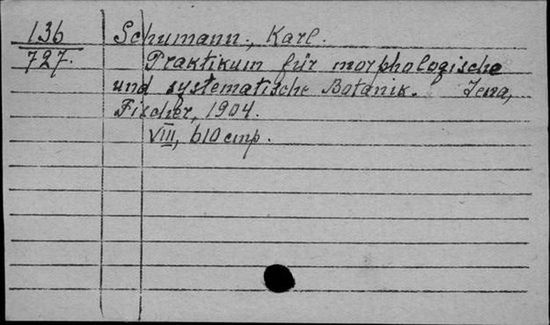 136
727.
Schumann, Karl.
Praktikum für morphologische
und systematische Botanik. Jena,
Fischer, 1904.
VIII, 610 стр.